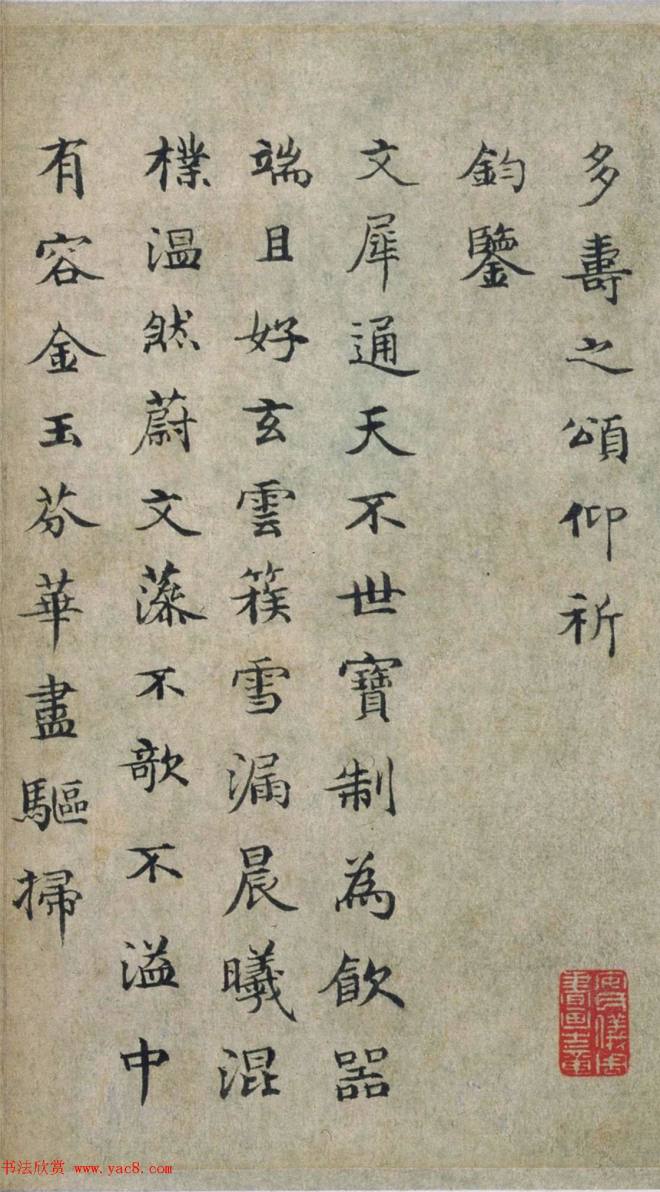 多壽之頌仰祈
鈞鑒
文犀通天不世寶制為飲器
端且好玄雲簇雪漏晨曦混
樸溫然蔚文藻不欹不溢中
有容金玉芬華盡驅掃
安儀周書畫之章
书法欣赏 www.yac8.com